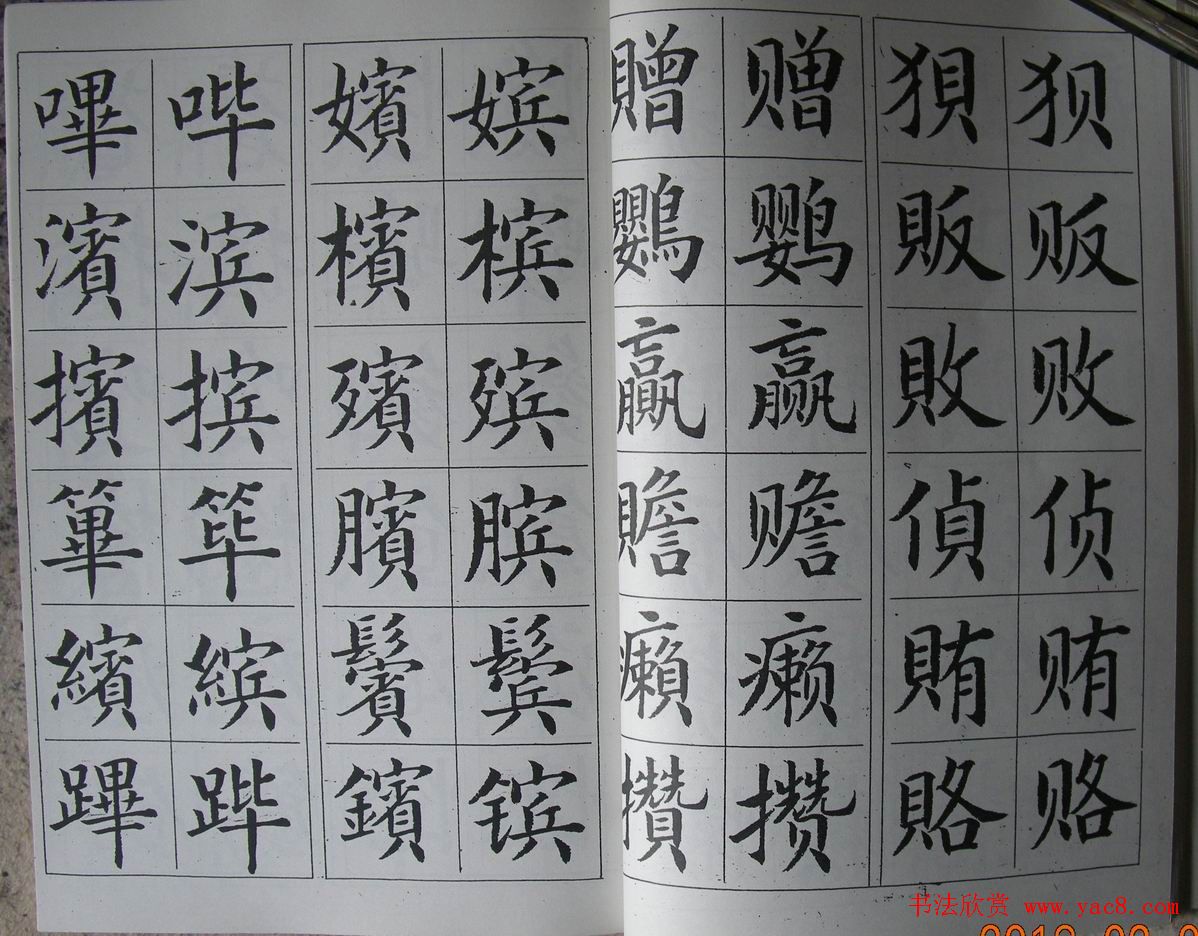 嗶 哔 嬪 嫔
濱 滨 檳 槟
擯 摈 殯 殡
篳 筚 臏 膑
繽 缤 鬢 鬓
蹕 跸 鑌 镔
贈 赠 狽 狈
鸚 鹦 販 贩
贏 赢 敗 败
贍 赡 偵 侦
癩 癞 賄 贿
攢 攒 賂 赂
书法欣赏 www.yac8.com